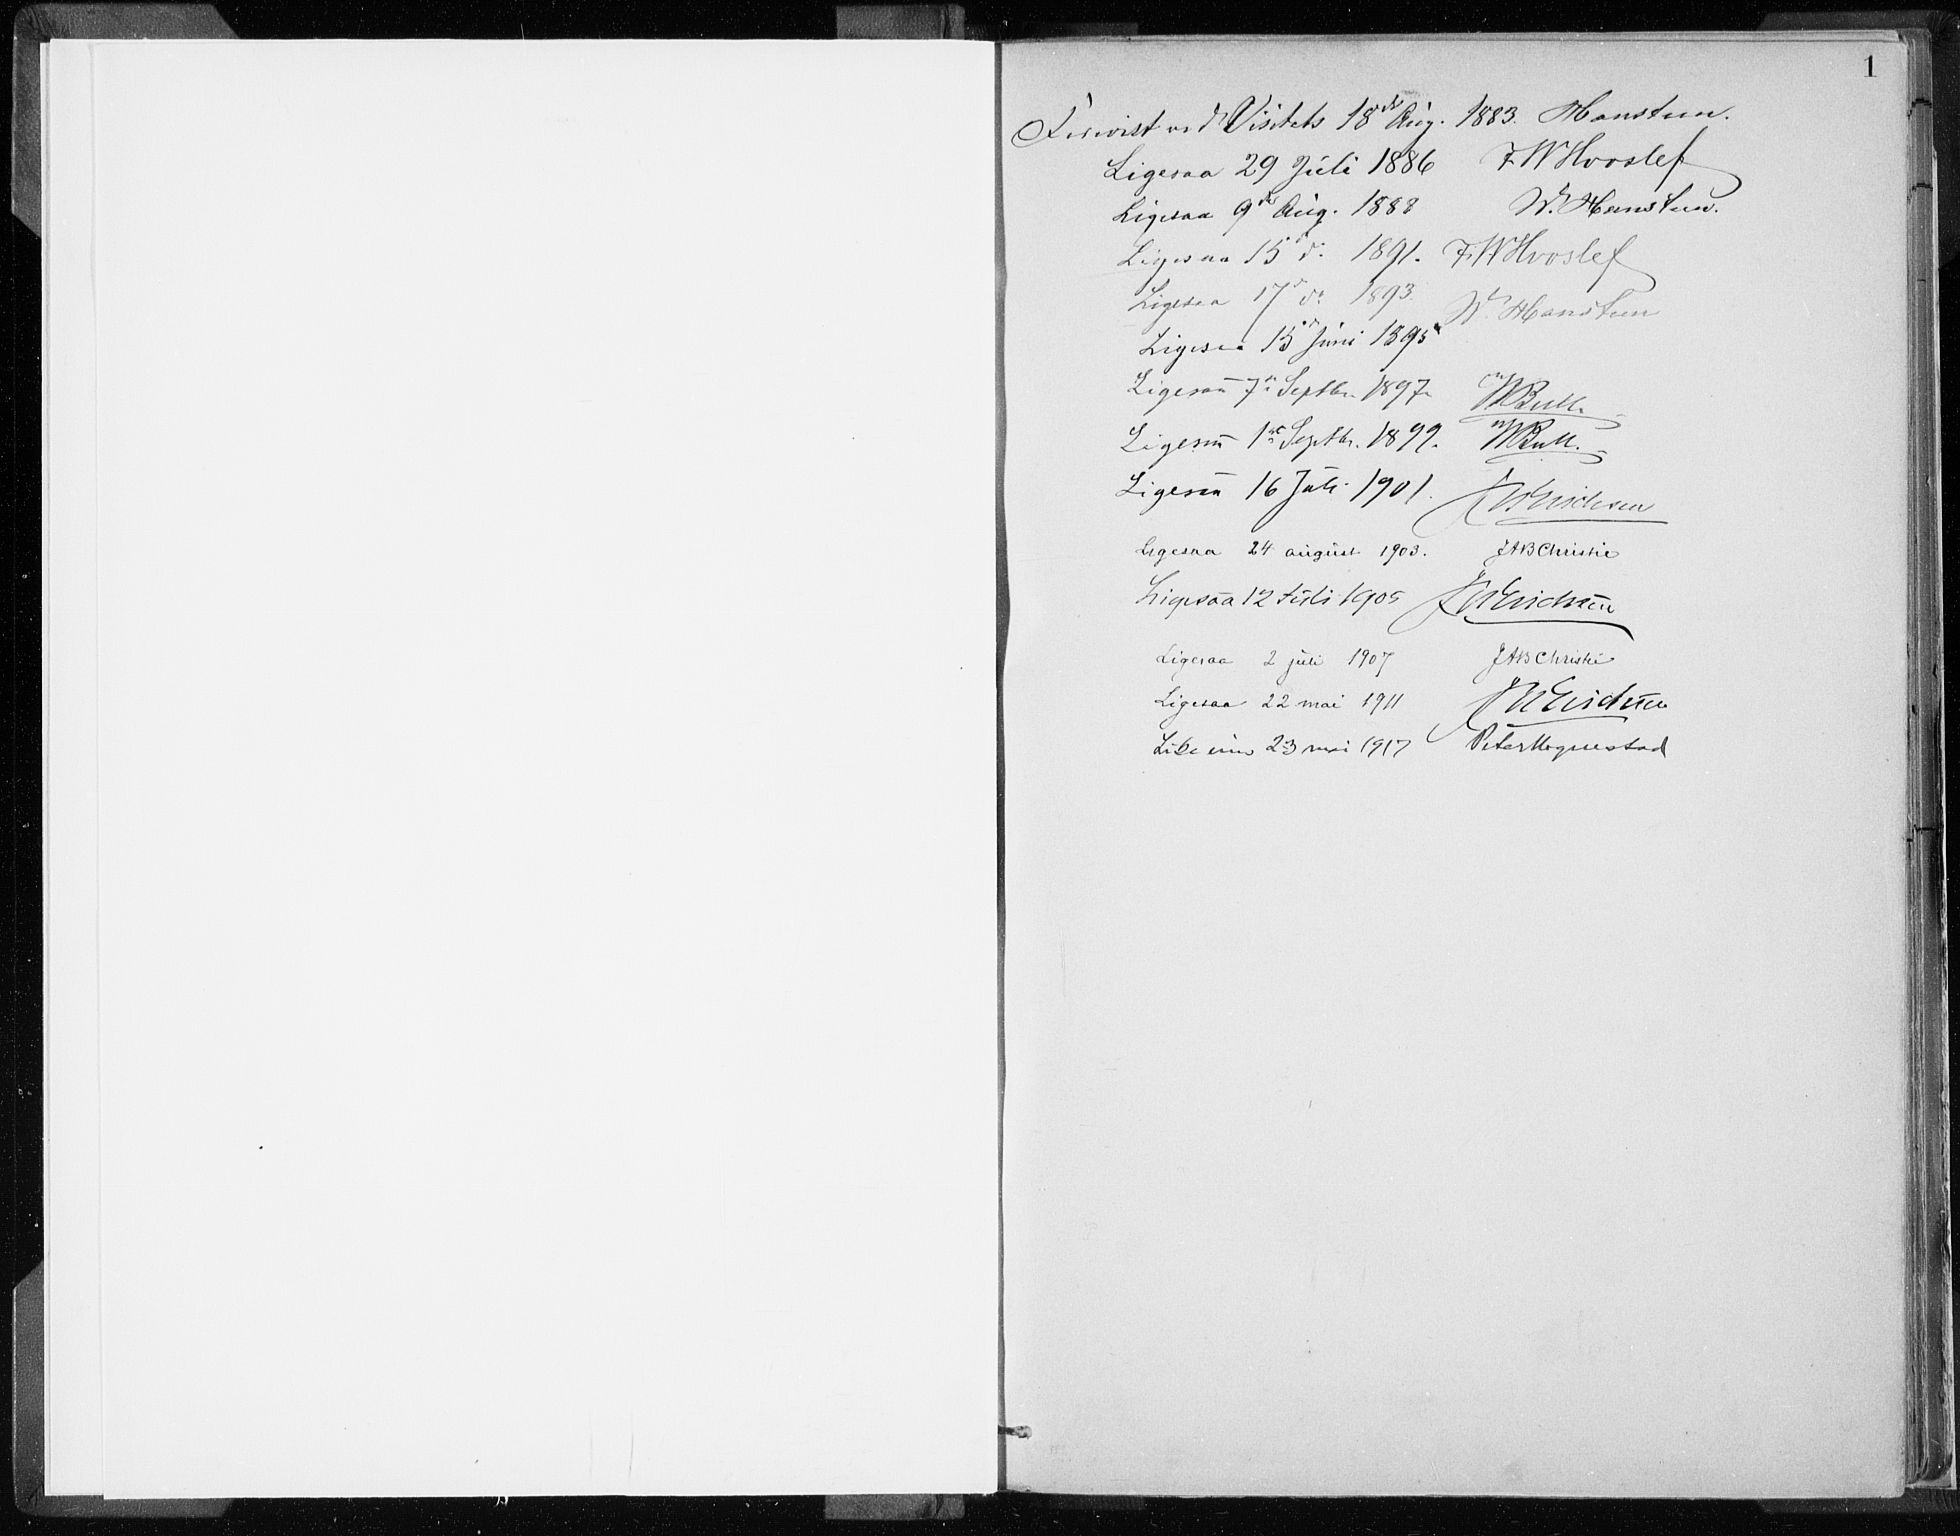 1
Forevist ved Visitats 18de Aug. 1883. Hansteen.
Ligesaa 29 Juli 1886 F W Hvoslef
Ligesaa 9de Aug. 1888 W. Hansteen.
Ligesaa 15d do 1891. F W Hvoslef
Ligesaa 17d do 1893. W. Hansteen
Ligesaa 15d Juni 1895
Ligesaa 7de Septbr. 1897 Bull.
Ligesaa 1ste Septbr. 1899. Bull.
Ligesaa 16 Juli 1901. Erichsen
Ligesaa 24 august 1903. J A B Christie
Ligesaa 12 Juli 1905 Erichsen
Ligesaa 2 juli 1907 J A B Christie
Ligesaa 22 mai 1911 Erichsen
Like eins 23 mai 1917 Peter Hognestad